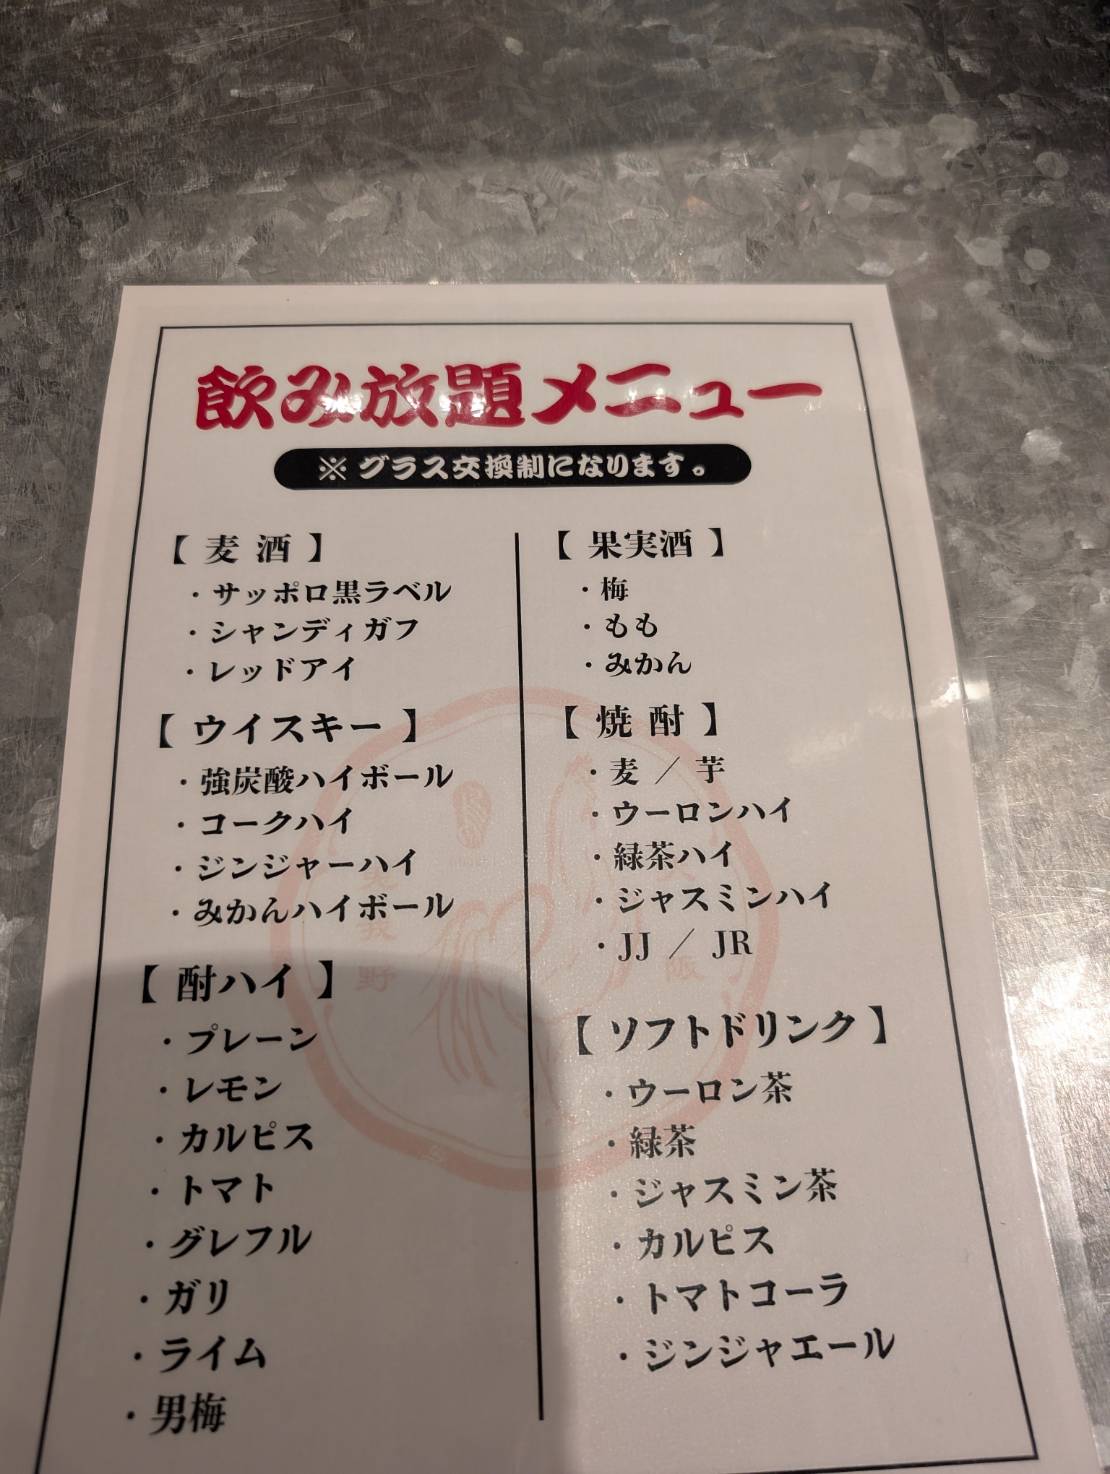 飲み放題メニュー
※ グラス交換制になります。
【 麦 酒 】
・サッポロ黒ラベル
・シャンディガフ
・レッドアイ
【 ウイスキー 】
・強炭酸ハイボール
・コークハイ
・ジンジャーハイ
・みかんハイボール
【 酎ハイ 】
・プレーン
・レモン
・カルピス
・トマト
・グレフル
・ガリ
・ライム
・男梅
【 果実酒 】
・梅
・もも
・みかん
【 焼 酎 】
・麦 ／ 芋
・ウーロンハイ
・緑茶ハイ
・ジャスミンハイ
・JJ ／ JR
【 ソフトドリンク 】
・ウーロン茶
・緑茶
・ジャスミン茶
・カルピス
・トマトコーラ
・ジンジャエール